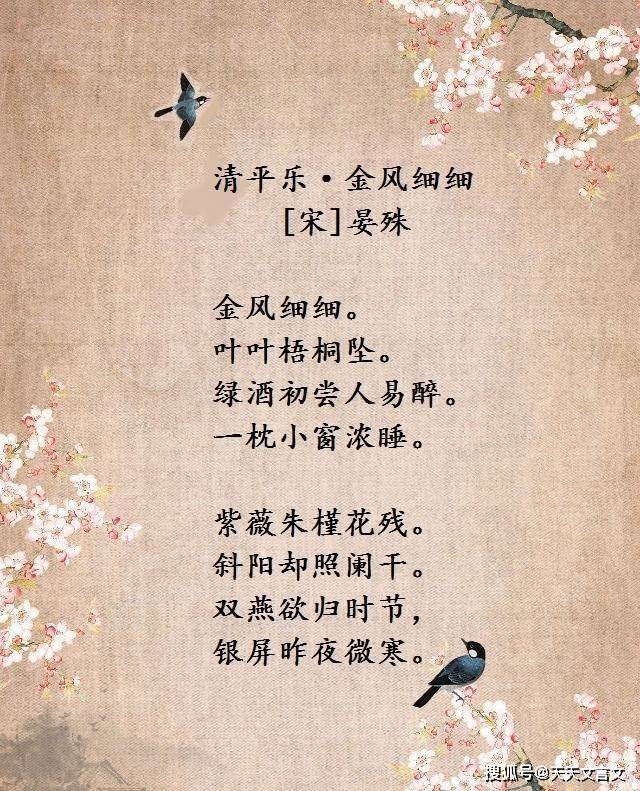 清平乐·金风细细
[宋]晏殊
金风细细。
叶叶梧桐坠。
绿酒初尝人易醉。
一枕小窗浓睡。
紫薇朱槿花残。
斜阳却照阑干。
双燕欲归时节，
银屏昨夜微寒。
搜狐号@天天文言文